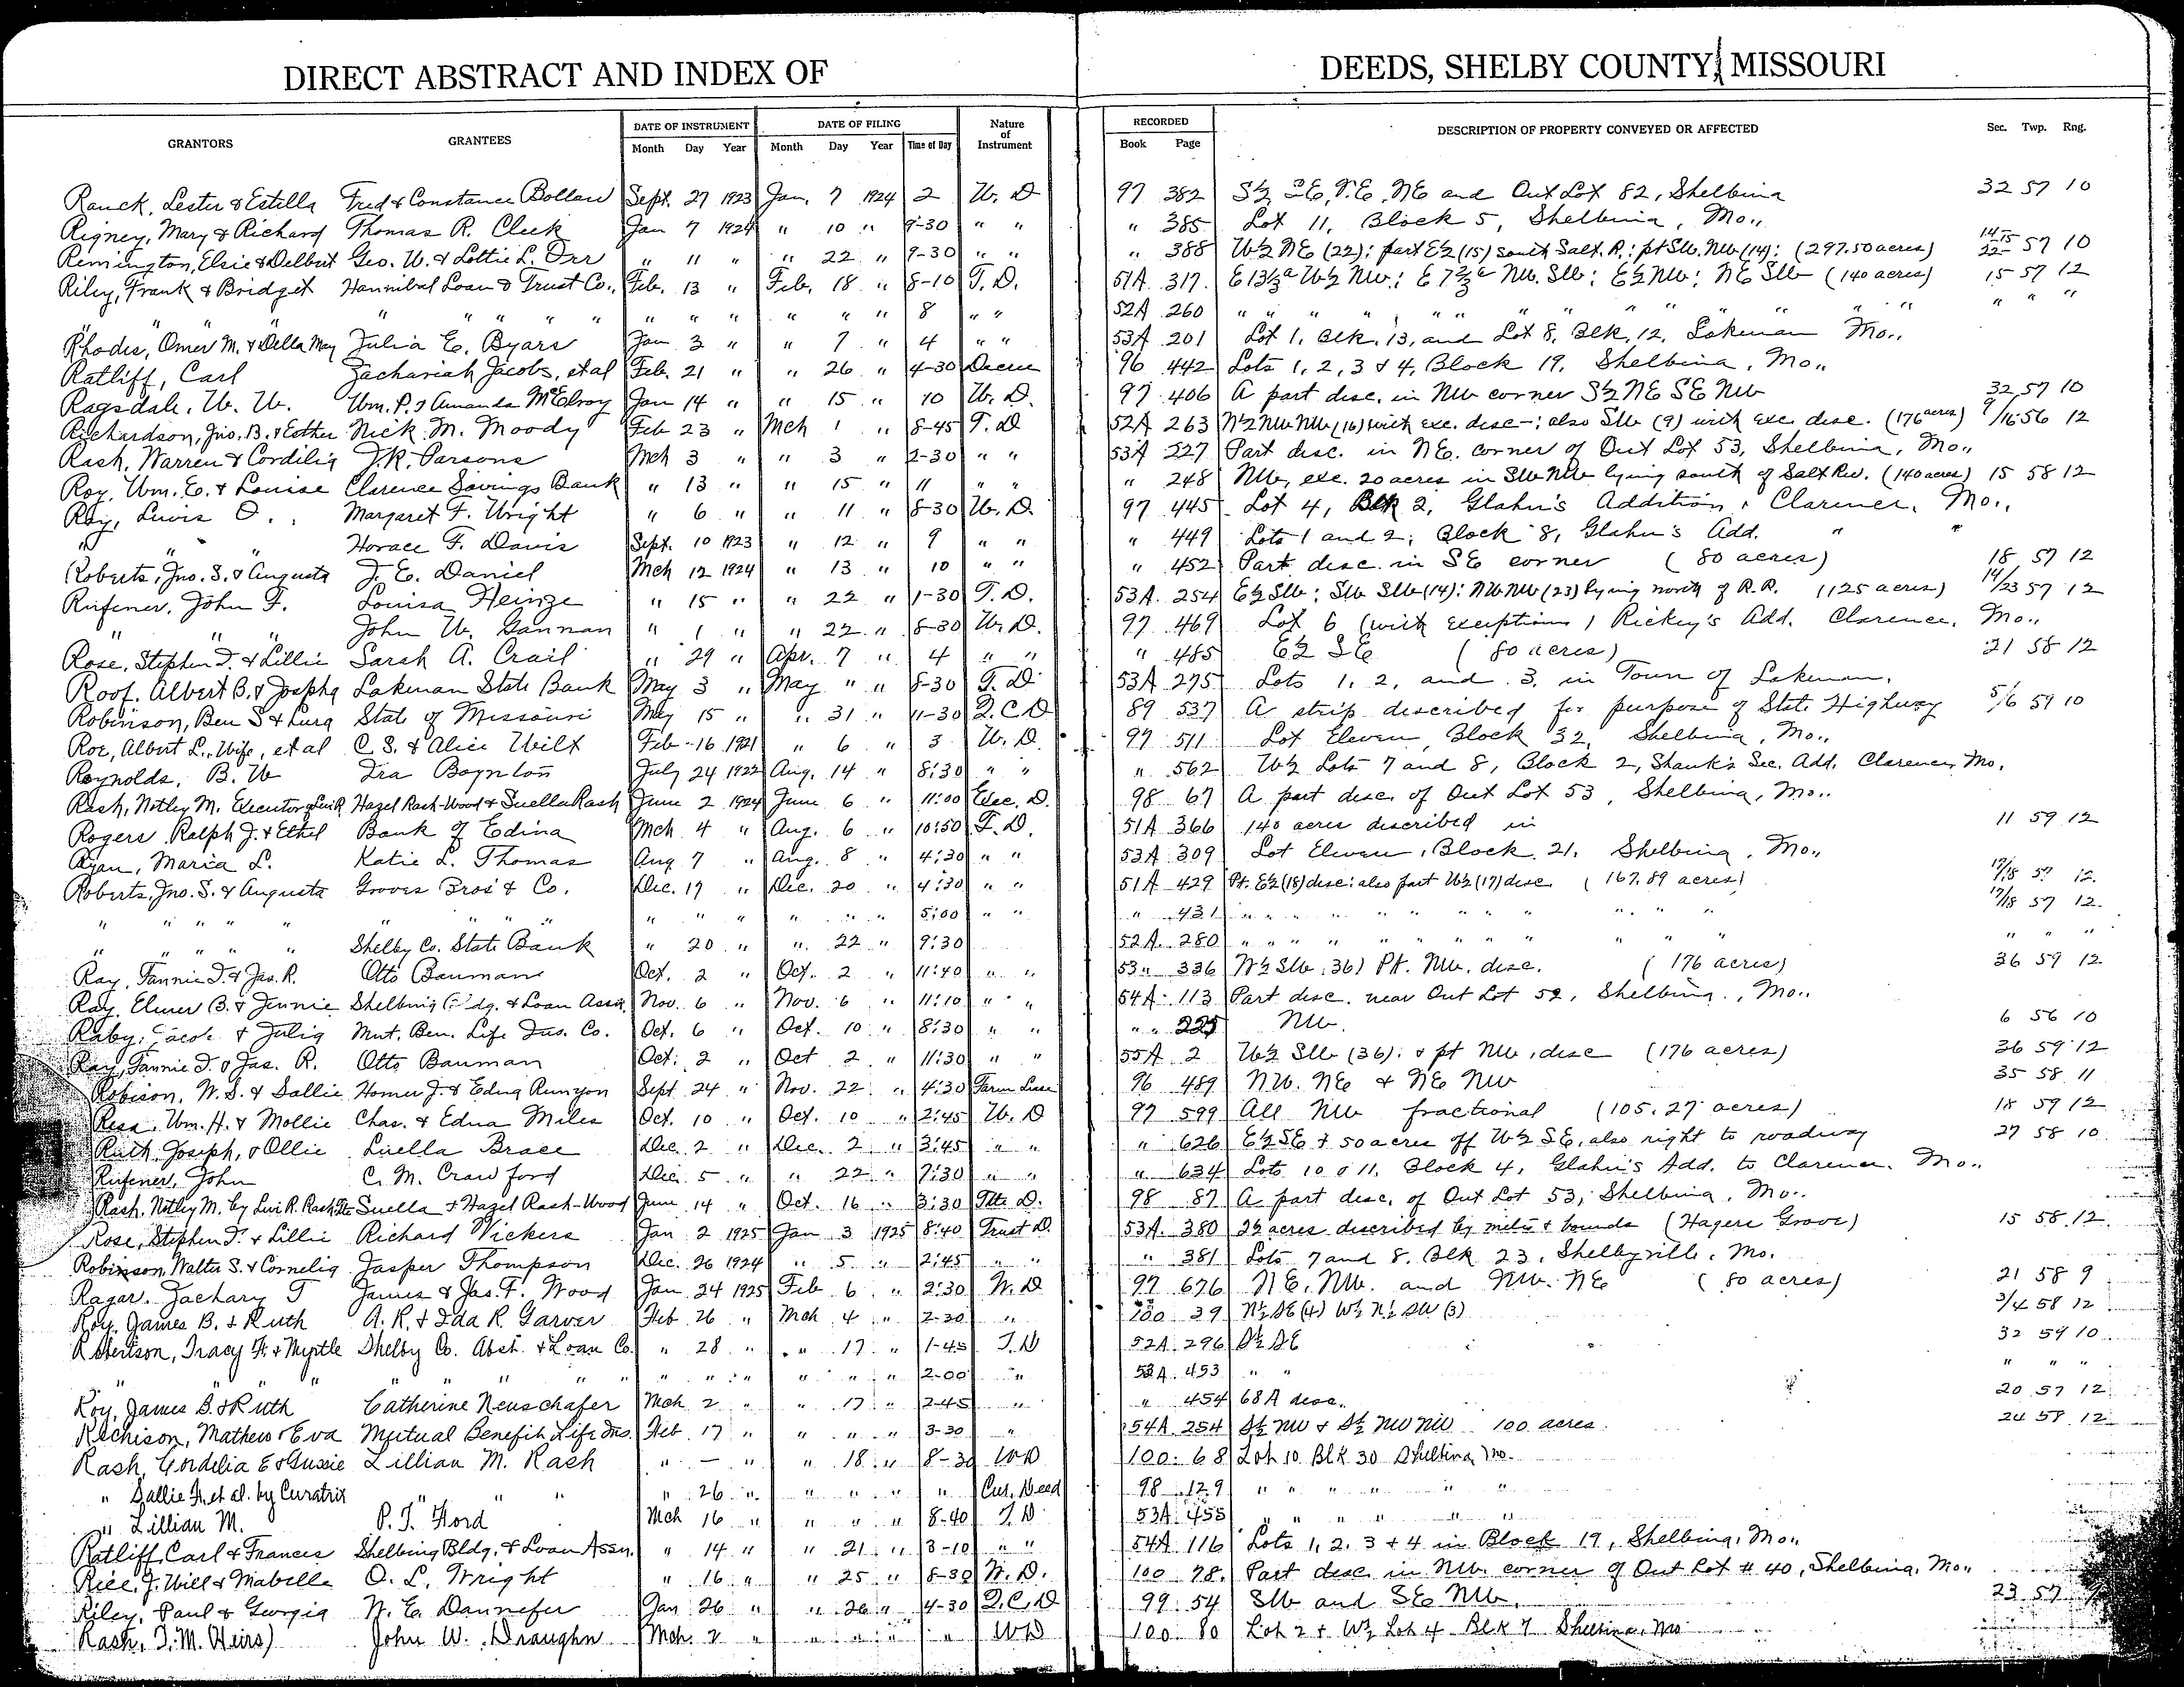 DIRECT ABSTRACT AND INDEX OF DEEDS, SHELBY COUNTY, MISSOURI
GRANTORS GRANTEES DATE OF INSTRUMENT DATE OF FILING Nature of Instrument RECORDED DESCRIPTION OF PROPERTY CONVEYED OR AFFECTED Sec. Twp. Rng.
Month Day Year Month Day Year Time of Day Book Page
Ranck, Lester & Estella Fred & Constance Sept. 27 1923 Jan. 7 1924 2 W. D 97 382 S½ SE, NE and Out Lot 82, Shelbina 32 57 10
Rigney, Mary & Richard Thomas R. Cleek Jan 7 1924 " 10 " 9-30 " " " 385 Lot 11, Block 5, Shelbina, Mo.,
Remington, Elsie & Delbert Geo. W. & Lottie L. Orr " 11 " " 22 " 9-30 " " " 388 W½ NE (22); part E½ (15) south Salt R.; pt SW. NW (14); (297.50 acres) 14 15 22 57 10
Riley, Frank & Bridget Hannibal Loan & Trust Co., Feb. 13 " Feb. 18 " 8-10 T. D. 51A 317. E 13⅓ a W½ NW; E 7⅔ a NW. SW; E½ NW; NE SW (140 acres) 15 57 12
" " " " " " " " " " " " " " " 8 " " 52A 260 " " " " " " " " " " "
Rhodes, Omer M. & Della May Julia E. Byars Jan 3 " " 7 " 4 " " 53A 201 Lot 1, Blk. 13, and Lot 8, Blk, 12, Lakenan Mo.,
Ratliff, Carl Zachariah Jacobs, et al Feb. 21 " " 26 " 4-30 Decree 96 442 Lots 1, 2, 3 & 4, Block 19, Shelbina, Mo.,
Ragsdale, W. W. Wm. P. & Amanda McElroy Jan 14 " " 15 " 10 W. D. 97 406 A part desc. in NW corner S½ NE SE NW 32 57 10
Richardson, Jno. B. & Esther Nick M. Moody Feb 23 " Mch 1 " 8-45 T. D 52A 263 N½ NW NW (16) with exc. desc-; also SW (9) with exc desc. (176 acres) 9/16 56 12
Rash, Warren & Cordilia J. R. Parsons Mch 3 " " 3 " 2-30 " " 53A 227 Part desc. in N.E. corner of Out Lot 53, Shelbina, Mo.,
Roy, Wm. E. & Louise Clarence Savings Bank " 13 " " 15 " 11 " " " 248 NW, exc. 20 acres in SW NW lying south of Salt Riv. (140 acres) 15 58 12
Roy, Lewis O. Margaret F. Wright " 6 " " 11 " 8-30 W. D. 97 445 Lot 4, Blk 2, Glahn's Addition, Clarence, Mo.,
" " " Horace F. Davis Sept. 10 1923 " 12 " 9 " " " 449 Lots 1 and 2, Block 8, Glahn's Add. " "
Roberts, Jno. S. & Augusta J. E. Daniel Mch 12 1924 " 13 " 10 " " " 452 Part desc. in SE corner (80 acres) 18 57 12
Rufener, John F. Louisa Heinze " 15 " " 22 " 1-30 T. D. 53A 254 E½ SW; SW SW (14); NW NW (23) lying north of R.R. (125 acres) 14/23 57 12
" " " John W. Gannan " 1 " " 22 " 8-30 W. D. 97 469 Lot 6 (with exceptions) Rickey's Add. Clarence, Mo.,
Rose, Stephen T. & Lillie Sarah A. Crail " 29 " Apr. 7 " 4 " " " 485 E½ SE (80 acres) 21 58 12
Roof, Albert B. & Josepha Lakenan State Bank May 3 " May " " 8-30 T. D 53A 275 Lots 1, 2, and 3, in Town of Lakenan.
Robinson, Ben S & Lura State of Missouri May 15 " " 31 " 11-30 Q. C. D 89 537 A strip described for purpose of State Highway 5/6 59 10
Roe, Albert L., Wife, et al C. S. & Alice Wilt Feb. 16 1921 " 6 " 3 W. D. 97 511 Lot Eleven, Block 32, Shelbina, Mo.,
Reynolds, B. W Ira Boynton July 24 1922 Aug. 14 " 8:30 " " " 562 W½ Lots 7 and 8, Block 2, Shank's Sec. Add. Clarence, Mo.
Rash, Notley M. Executor Hazel Rash-Wood & Suella Rash June 2 1924 June 6 " 11:00 Exec. D. 98 67 A part desc. of Out Lot 53, Shelbina, Mo.,
Rogers, Ralph J. & Ethel Bank of Edina Mch 4 " Aug. 6 " 10:50 T. D. 51A 366 140 acres described in 11 59 12
Ryan, Maria L. Katie L. Thomas Aug 7 " Aug. 8 " 4:30 " " 53A 309 Lot Eleven, Block 21, Shelbina, Mo.,
Roberts, Jno. S. & Augusta Groves Bros & Co. Dec. 19 " Dec. 20 " 4:30 " " 51A 429 Pt. E½ (18) desc; also part W½ (17) desc (167.89 acres) 17/18 57 12.
" " " " " " " " " " " " " 5:00 " " " 431 " " " " " " " " " " 17/18 57 12.
" " " " Shelby Co. State Bank " 20 " " 22 " 9:30 52A. 280 " " " " " " " " " " " " "
Ray, Fannie T. & Jas. R. Otto Bauman Oct. 2 " Oct. 2 " 11:40 " " 53 " 336 W½ SW (36) Pt. NW, desc. (176 acres) 36 59 12
Ray, Elmer B. & Jennie Shelbina Bldg. & Loan Assn. Nov. 6 " Nov. 6 " 11:10 " " 54A. 113 Part desc. near Out Lot 52, Shelbina, Mo..
Raby, Jacob & Julia Mut. Ben. Life Ins. Co. Oct. 6 " Oct. 10 " 8:30 " " " " 225 NW. 6 56 10
Ray, Fannie T. & Jas. R. Otto Bauman Oct. 2 " Oct 2 " 11:30 " " 55A 2 W½ SW (36); & pt NW, desc (176 acres) 36 59 12
Robison, W. S. & Sallie Homer J. & Edna Runyon Sept 24 " Nov. 22 " 4:30 Farm Lease 96 489 N.W. NE & NE NW 35 58 11
Wm. H. & Mollie Chas. & Edna Miles Oct. 10 " Oct. 10 " 2:45 W. D 97 599 All NW fractional (105.27 acres) 18 59 12
Joseph, & Ollie Luella Brace Dec. 2 " Dec. 2 " 3:45 " " " 626 E½ SE & 50 acres off W½ SE, also right to roadway 27 58 10
Rufener, John C. M. Crawford Dec. 5 " " 22 " 7:30 " " " 634 Lots 10 & 11, Block 4, Glahn's Add. to Clarence, Mo..
Rash, Notley M. by Levi R. Rash Suella & Hazel Rash-Wood June 14 " Oct. 16 " 3:30 D. 98 87 A part desc. of Out Lot 53, Shelbina, Mo..
Rose, Stephen T. & Lillie Richard Vickers Jan 2 1925 Jan 3 1925 8:40 Trust D. 53A. 380 acres described by metes & bounds (Hagers Grove) 15 58 12.
Robinson, Walter S. & Cornelia Jasper Thompson Dec. 26 1924 " 5 " 2:45 " " 381 Lots 7 and 8, Blk 23, Shelbyville, Mo.
Ragar, Zachary T James & Jas. F. Wood Jan 24 1925 Feb 6 " 2:30 W. D 97 676 N.E. NW. and NW. NE (80 acres) 21 58 9
Roy, James B. & Ruth A. R. & Ida R. Garver Feb 26 " Mch 4 " 2-30 " 100 39 N½ SE (4) W½ N½ SW (3) 3/4 58 12
Robertson, Tracy F. & Myrtle Shelby Co. Abst. & Loan Co. " 28 " " 17 " 1-45 T. D 52A. 296 S½ SE 32 59 10
" " " " " " " " " " " " " " 2-00 " 53A. 453 " " " " "
Roy, James B. & Ruth Catherine Neuschafer Mch 2 " " 17 " 2-45 " " 454 68 A desc. 20 57 12
Richison, Mathew & Eva Mutual Benefit Life Ins. Feb. 17 " " " " 3-30 " 54A 254 S½ NW & S½ NW NW 100 acres 24 58 12
Rash, Cordelia E & Gussie Lillian M. Rash " — " " 18 " 8-30 WD 100 68 Lot 10 Blk 30 Shelbina, Mo.
" Sallie F. et al. by Curatrix " " " " 26 " " " " " Cur. Deed 98 129 " " " " " "
" Lillian M. P. T. Ford Mch 16 " " " " 8-40 T. D 53A 455 " " " " " "
Ratliff, Carl & Frances Shelbina Bldg. & Loan Assn. " 14 " " 21 " 3-10 " " 54A 116 Lots 1, 2, 3 & 4 in Block 19, Shelbina, Mo.,
Rice, J. Will & Mabelle O. L. Wright " 16 " " 25 " 8-30 W. D. 100 78. Part desc. in NW. corner of Out Lot # 40, Shelbina, Mo.,
Riley, Paul & Georgia W. E. Dannefer Jan 26 " " 26 " 4-30 Q. C. D 99 54 SW and SE NW. 23 57
Rash, T. M. Heirs) John W. Draughn Mch. 2 " " " " " WD 100 80 Lot 2 & W½ Lot 4 Blk 7 Shelbina, Mo